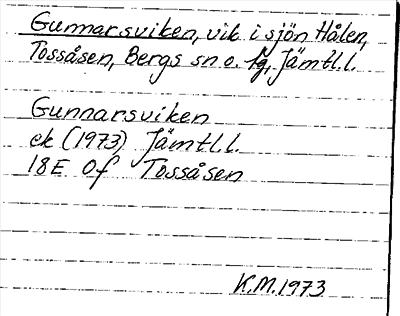 Gunnarsviken, vik i sjön Hålen,
Tossåsen, Bergs sn o. tg, Jämtl.l.
Gunnarsviken
ek (1973) Jämtl.l.
18E 0f Tossåsen
K.M. 1973